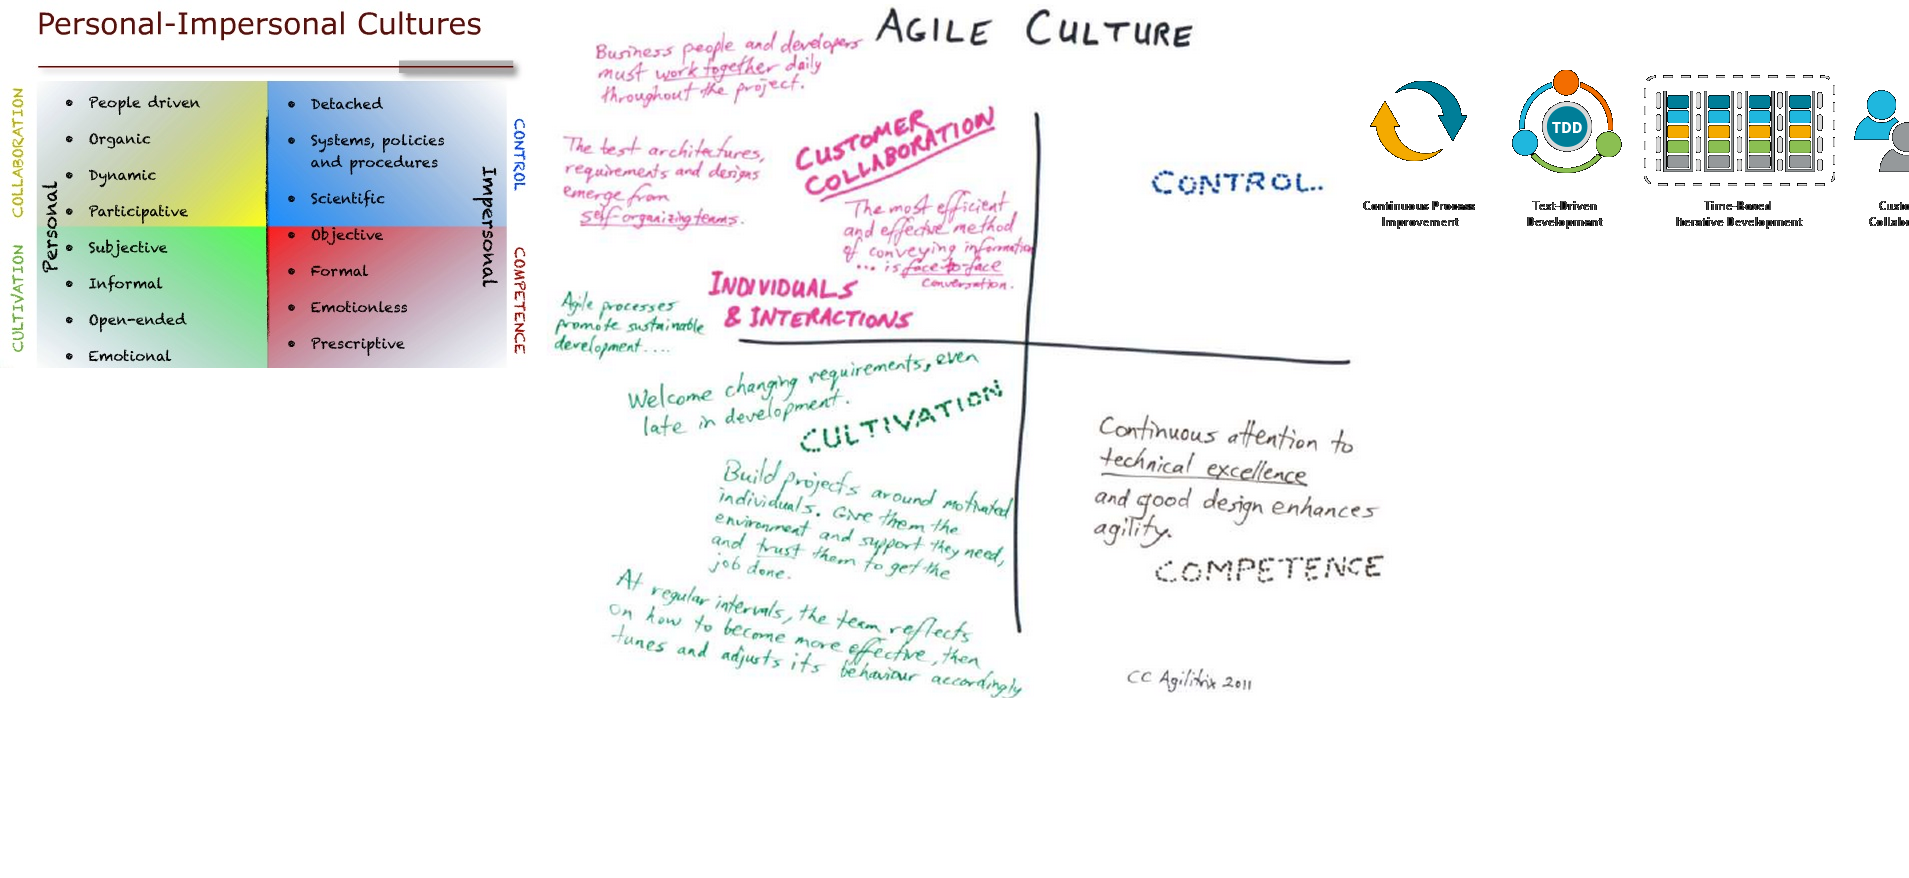 Personal-Impersonal Cultures
COLLABORATION
CULTIVATION
Personal
People driven
Organic
Dynamic
Participative
Subjective
Informal
Open-ended
Emotional
Detached
Systems, policies
and procedures
Scientific
Objective
Formal
Emotionless
Prescriptive
Impersonal
CONTROL
COMPETENCE
AGILE CULTURE
Business people and developers
must work together daily
throughout the project.
CUSTOMER
COLLABORATION
The test architectures,
requirements and designs
emerge from
self-organizing teams.
The most efficient
and effective method
of conveying information
... is face-to-face
conversation.
INDIVIDUALS
& INTERACTIONS
Agile processes
promote sustainable
development....
Welcome changing requirements, even
late in development.
CULTIVATION
Build projects around motivated
individuals. Give them the
environment and support they need,
and trust them to get the
job done.
At regular intervals, the team reflects
on how to become more effective, then
tunes and adjusts its behaviour accordingly
CONTROL..
Continuous attention to
technical excellence
and good design enhances
agility.
COMPETENCE
CC Agilitrix 2011
Continuous Process
Improvement
TDD
Text-Driven
Development
Time-Based
Iterative Development
Custo
Collabo